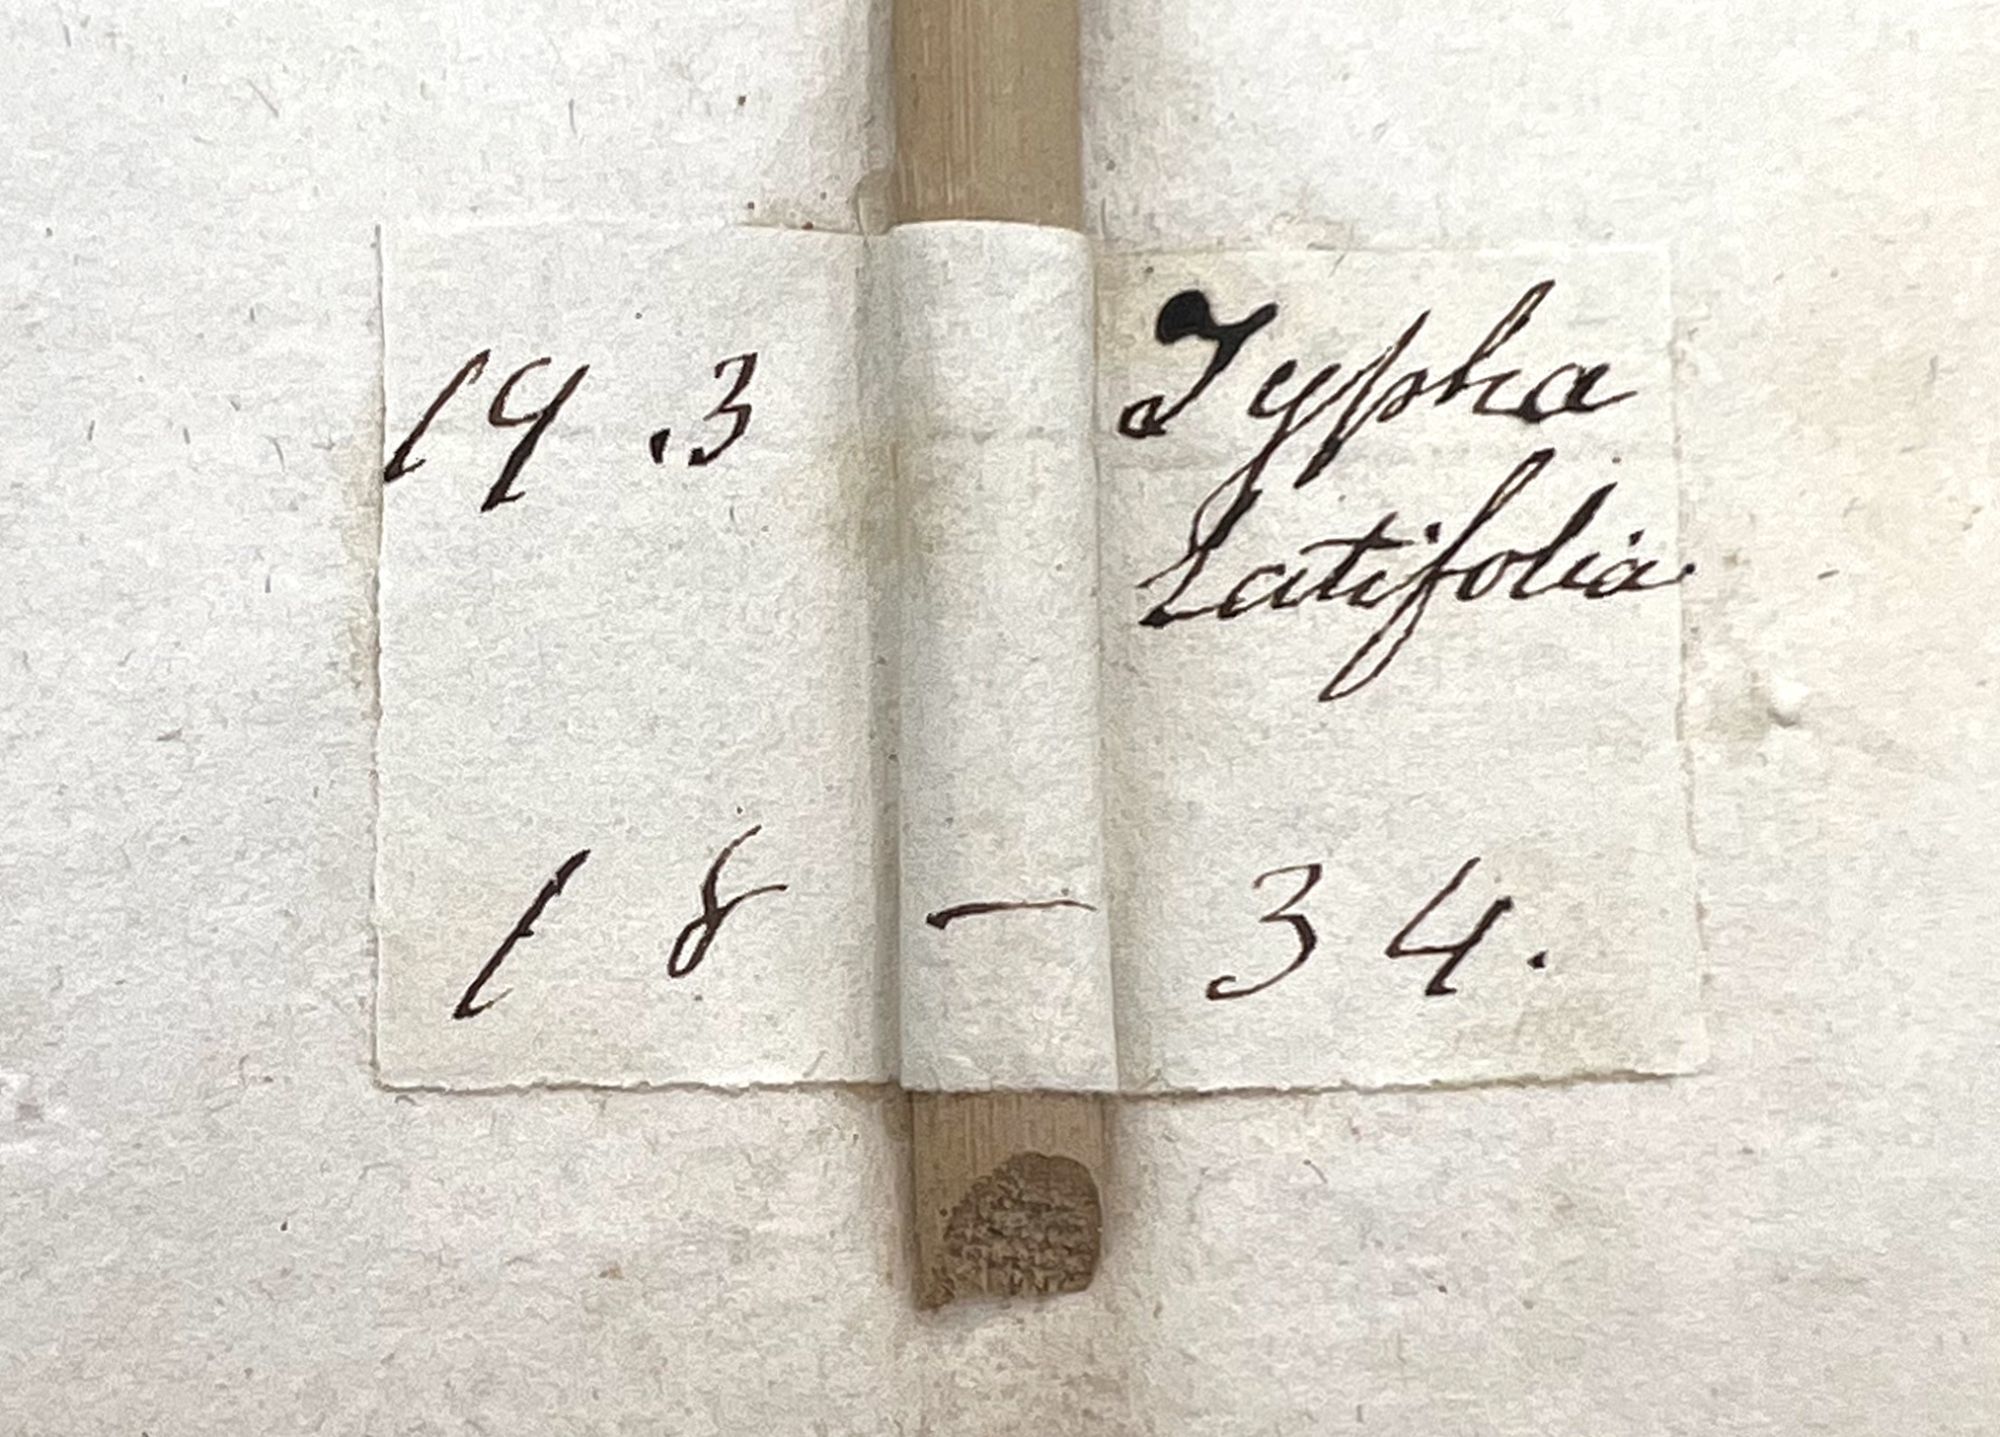 19.3 Typha
Latifolia
18 — 34.